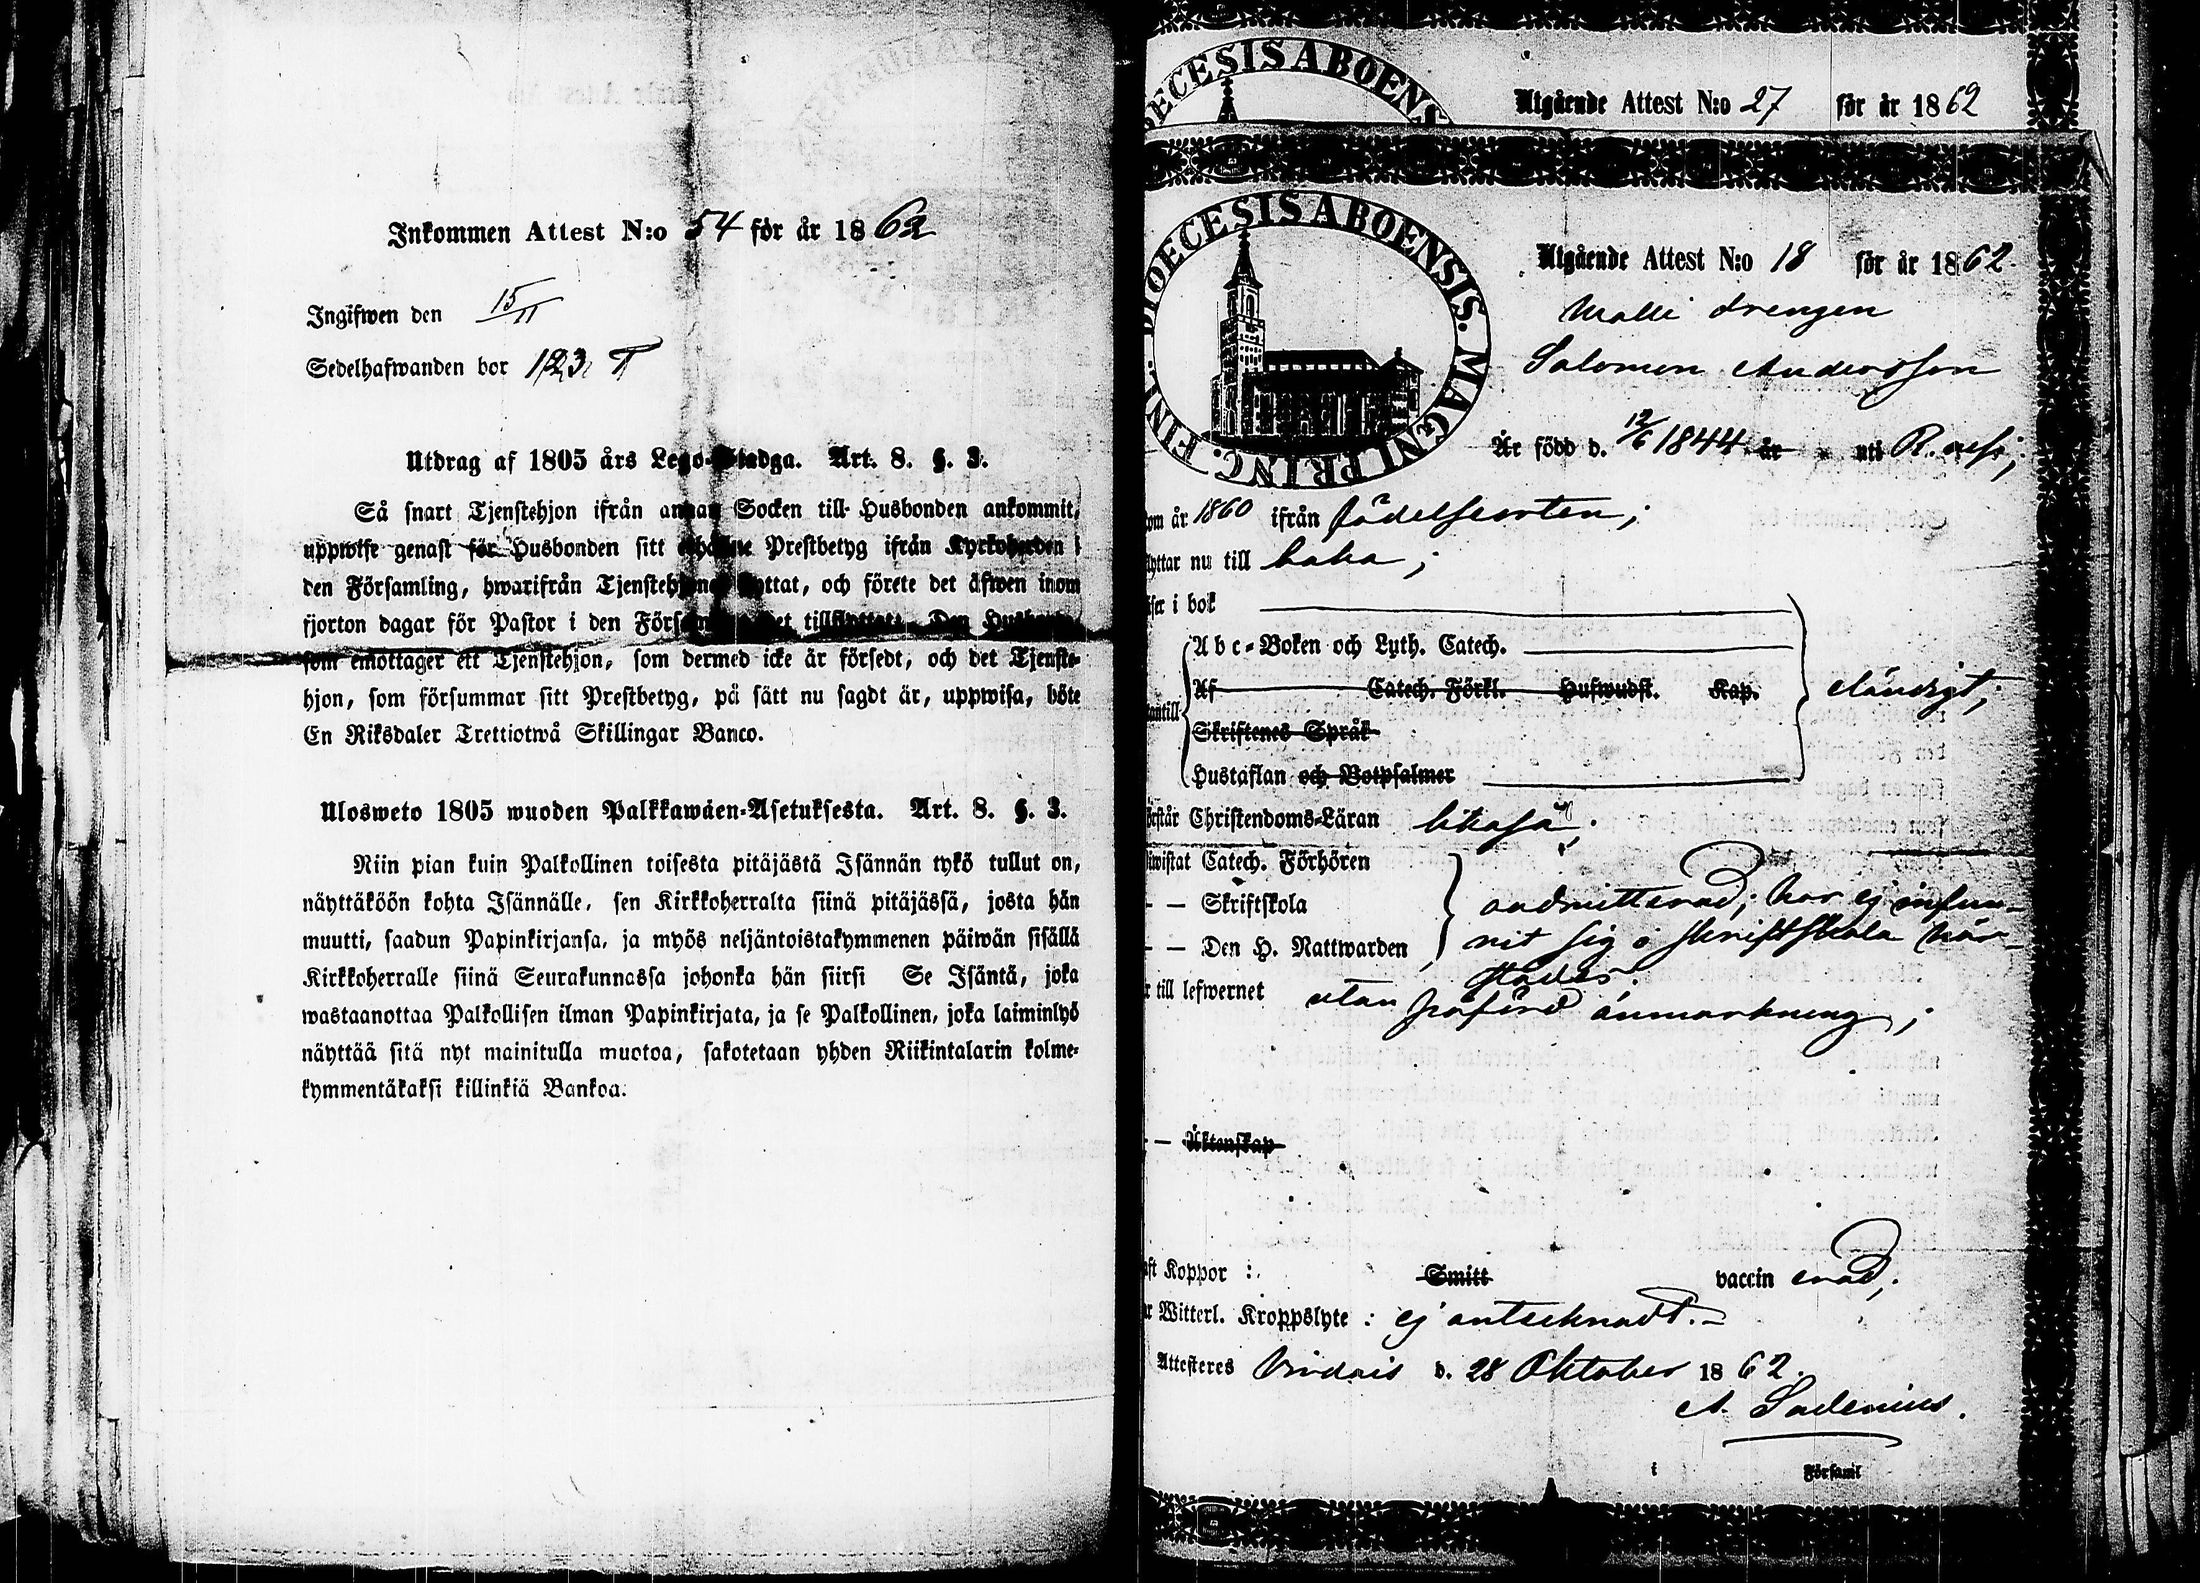 Inkommen Attest N:o 54 för år 1862
Ingifwen den 15/11
Sedelhafwanden bor 123 T
Utdrag af 1805 års Lego-Stadga. Art. 8. §. 3.
Så snart Tjenstehjon ifrån annan Socken till Husbonden ankommit,
uppwise genast för Husbonden sitt erhållne Prestbetyg ifrån Kyrkoherden i
den Församling, hwarifrån Tjenstehjonet flyttat, och förete det äfwen inom
fjorton dagar för Pastor i den Församling det tillflyttat. Den Husbonde,
som emottager ett Tjenstehjon, som dermed icke är försedt, och det Tjenste-
hjon, som försummar sitt Prestbetyg, på sätt nu sagdt är, uppwisa, böte
En Riksdaler Trettiotwå Skillingar Banco.
Ulosweto 1805 wuoden Palkkawäen-Asetuksesta. Art. 8. §. 3.
Niin pian kuin Palkollinen toisesta pitäjästä Isännän tykö tullut on,
näyttäköön kohta Isännälle, sen Kirkkoherralta siinä pitäjässä, josta hän
muutti, saadun Papinkirjansa, ja myös neljäntoistakymmenen päiwän sisällä
Kirkkoherralle siinä Seurakunnassa johonka hän siirsi Se Isäntä, joka
wastaanottaa Palkollisen ilman Papinkirjata, ja se Palkollinen, joka laiminlyö
näyttää sitä nyt mainitulla muotoa, sakotetaan yhden Riikintalarin kolme-
kymmentäkaksi killinkiä Bankoa.
DIOECESIS ABOENS
Utgående Attest N:o 27 för år 1862
DIOECESIS ABOENSIS. MAGNI PRINC. FINL.
Utgående Attest N:o 18 för år 1862
drengen
Salomon Andersson
Är född d. 12/6 1844 år uti
om år 1860 ifrån födelseorten;
lyttar nu till baka;
ser i bok
Abc-Boken och Luth. Catech.
Af Catech. Förkl. Hufwudst. Kap.
antill
Skriftenes Språk
Hustaflan och Botpsalmer
rstår Christendoms-Läran likaså;
wistat Catech. Förhören
— — Skriftskola oadmitterad; har ej infun-
— — Den H. Nattwarden nit sig i skriftskola här-
städes.
r till lefwernet utan påförd anmärkning;
— Äktenskap
ft Koppor : Smitt vaccinerad;
r Witterl. Kroppslyte : ej antecknadt.
Attesteres Virdois d. 28 Oktober 1862.
A. Sadenius.
i Församl